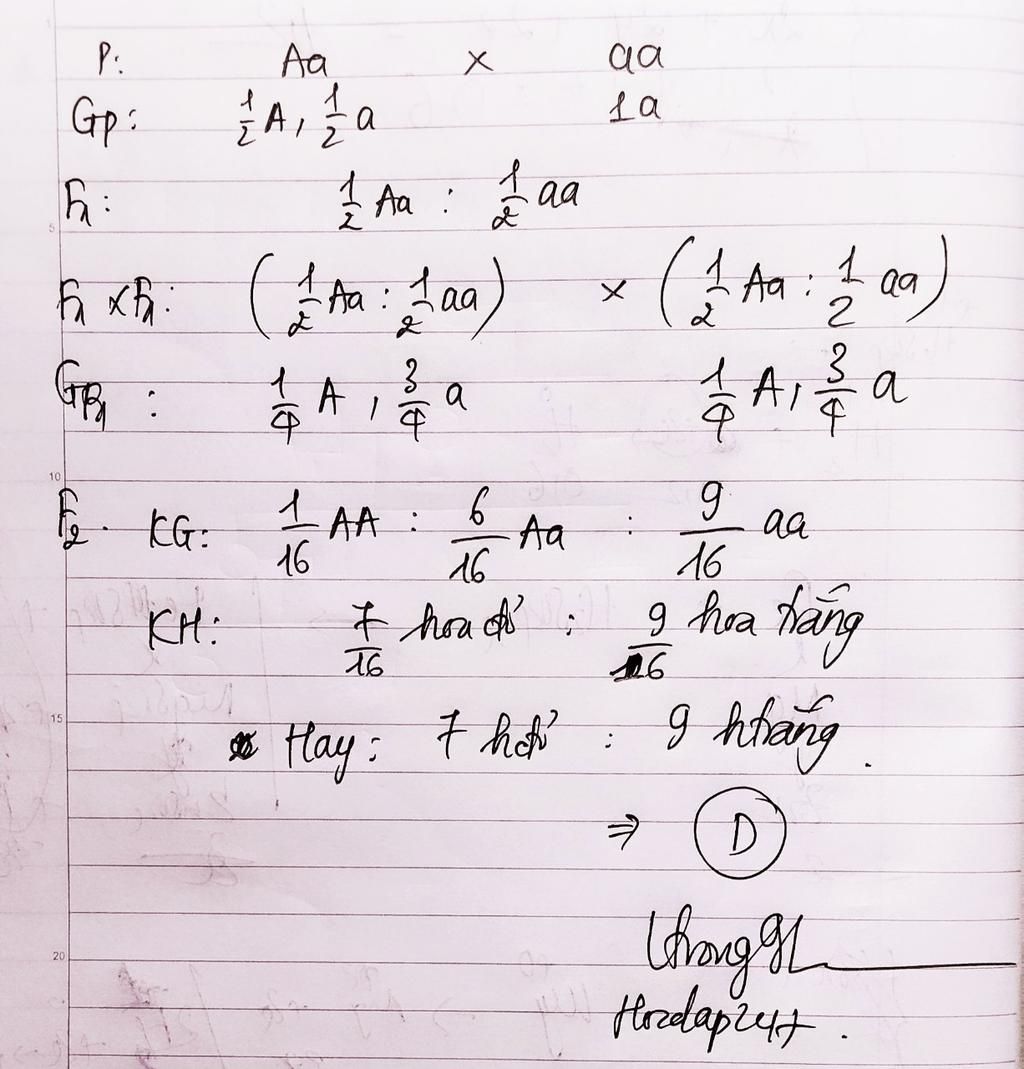 P: Aa × aa
Gp: 1/2 A, 1/2 a 1a
F1: 1/2 Aa : 1/2 aa
F1 × F1: (1/2 Aa : 1/2 aa) × (1/2 Aa : 1/2 aa)
GF1 : 1/4 A, 3/4 a 1/4 A, 3/4 a
F2. KG: 1/16 AA : 6/16 Aa : 9/16 aa
KH: 7/16 hoa đỏ : 9/16 hoa trắng
Hay: 7 hđỏ : 9 htrắng.
⇒ D
Hoidap247.
5
10
15
20